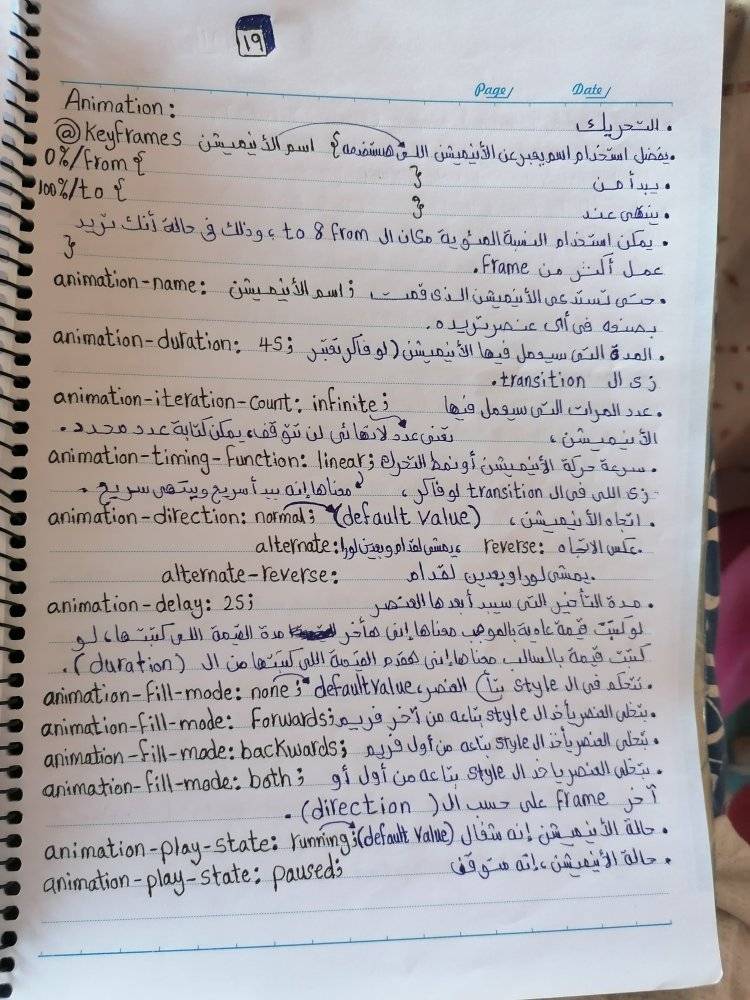 ١٩
Page/ Date/
Animation: • التحريك
@Keyframes اسم الأنيميشن { • يفضل استخدام اسم يعبر عن الأنيميشن اللي هستخدمه
0%/from { } • يبدأ من
100%/to { } • ينتهي عند
• يمكن استخدام النسبة المئوية مكان ال from & to، وذلك في حالة أنك تريد
} عمل أكثر من frame.
animation-name: اسم الأنيميشن; • حتى تستدعي الأنيميشن الذي قمت
بصنعه في أي عنصر تريده.
animation-duration: 4S; • المدة التي سيعمل فيها الأنيميشن (لو فاكر
زي ال transition.
animation-iteration-count: infinite; • عدد المرات التي سيعمل فيها
الأنيميشن، تعني عدد لانهائي لن تتوقف، يمكن كتابة عدد محدد.
animation-timing-function: linear; • سرعة حركة الأنيميشن أو نمط التحرك
زي اللي في ال transition لو فاكر، معناها إنه يبدأ سريع وينتهي سريع.
animation-direction: normal; (default value) • اتجاه الأنيميشن،
alternate: يمشي لقدام وبعدين لورا، reverse: عكس الاتجاه.
alternate-reverse: يمشي لورا وبعدين لقدام.
animation-delay: 2S; • مدة التأخير التي سيبدأ بعدها العنصر
لو كتبت قيمة عادية بالموجب معناها إني هأخر مدة القيمة اللي كتبتها، لو
كتبت قيمة بالسالب معناها إني هقدم القيمة اللي كتبتها من ال (duration).
animation-fill-mode: none; default value، • تتحكم في ال style بتاع العنصر
animation-fill-mode: Forwards; • بتخلي العنصر يأخذ ال style بتاعه من آخر فريم
animation-fill-mode: backwards; • بتخلي العنصر يأخذ ال style بتاعه من أول فريم
animation-fill-mode: both; • بتخلي العنصر ياخد ال style بتاعه من أول أو
آخر frame على حسب ال (direction).
animation-play-state: running; (default value) • حالة الأنيميشن إنه شغال
animation-play-state: paused; • حالة الأنيميشن، إنه متوقف